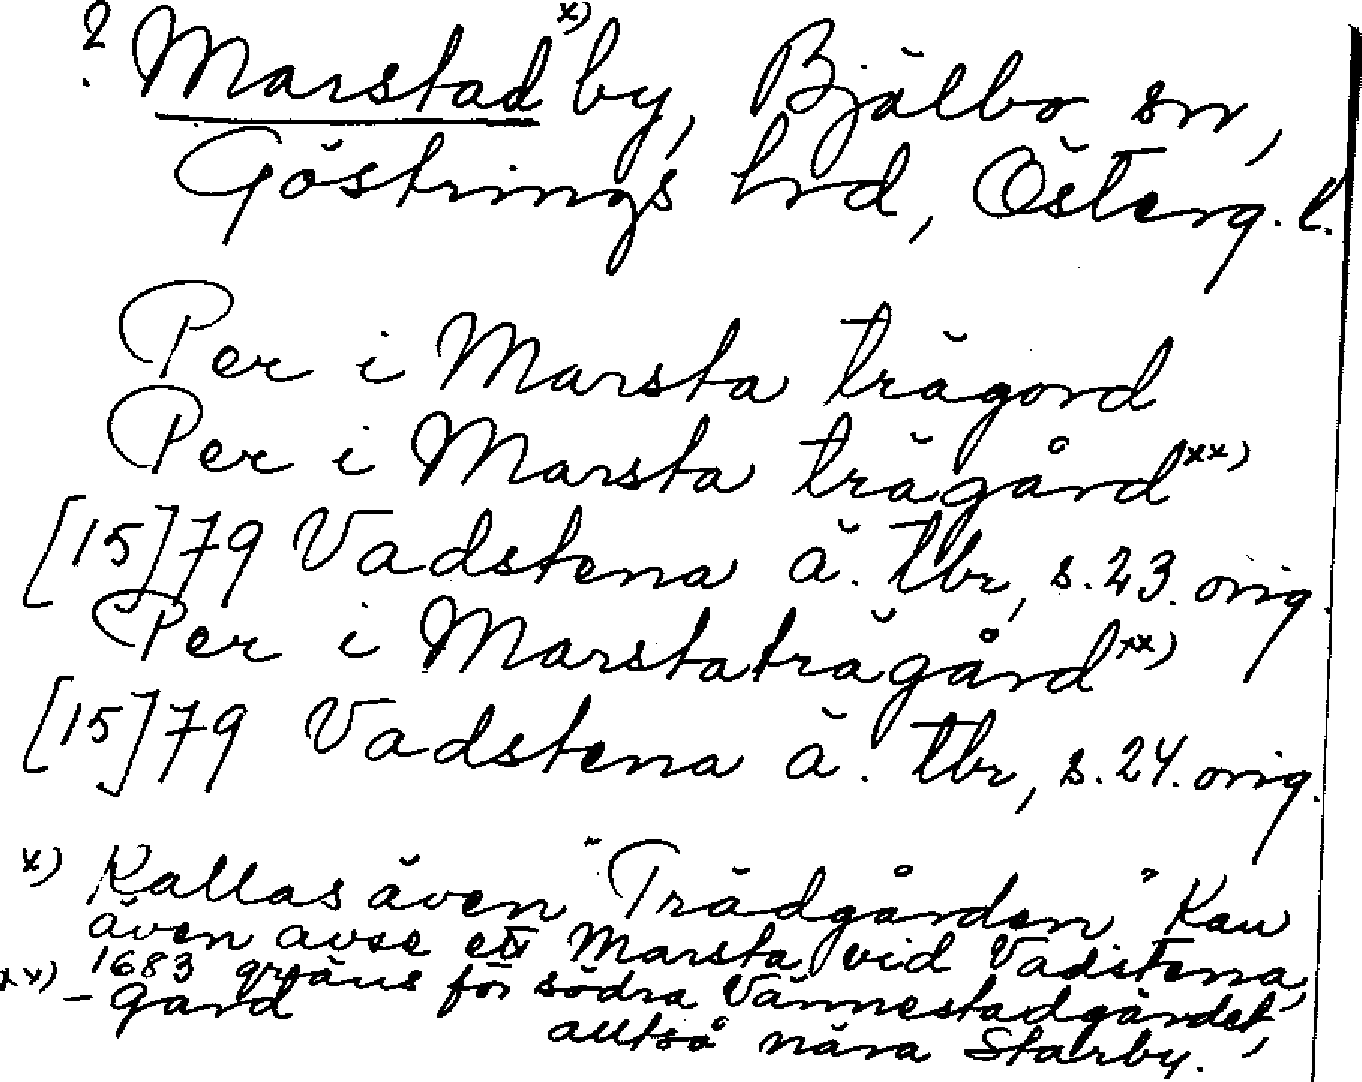 ? Marstad x) by, Bjälbo sn,
Göstrings hrd, Österg. l.
Per i Marsta trägord
Per i Marsta trägård xx)
[15]79 Vadstena ä. tbr, s. 23. orig.
Per i Marstaträgård xx)
[15]79 Vadstena ä. tbr, s. 24. orig.
x) Kallas även "Trädgården" Kan
även avse ett Marsta vid Vadstena,
1683 gräns för södra Vännestadgärdet,
xx) -gard
alltså nära Starby.